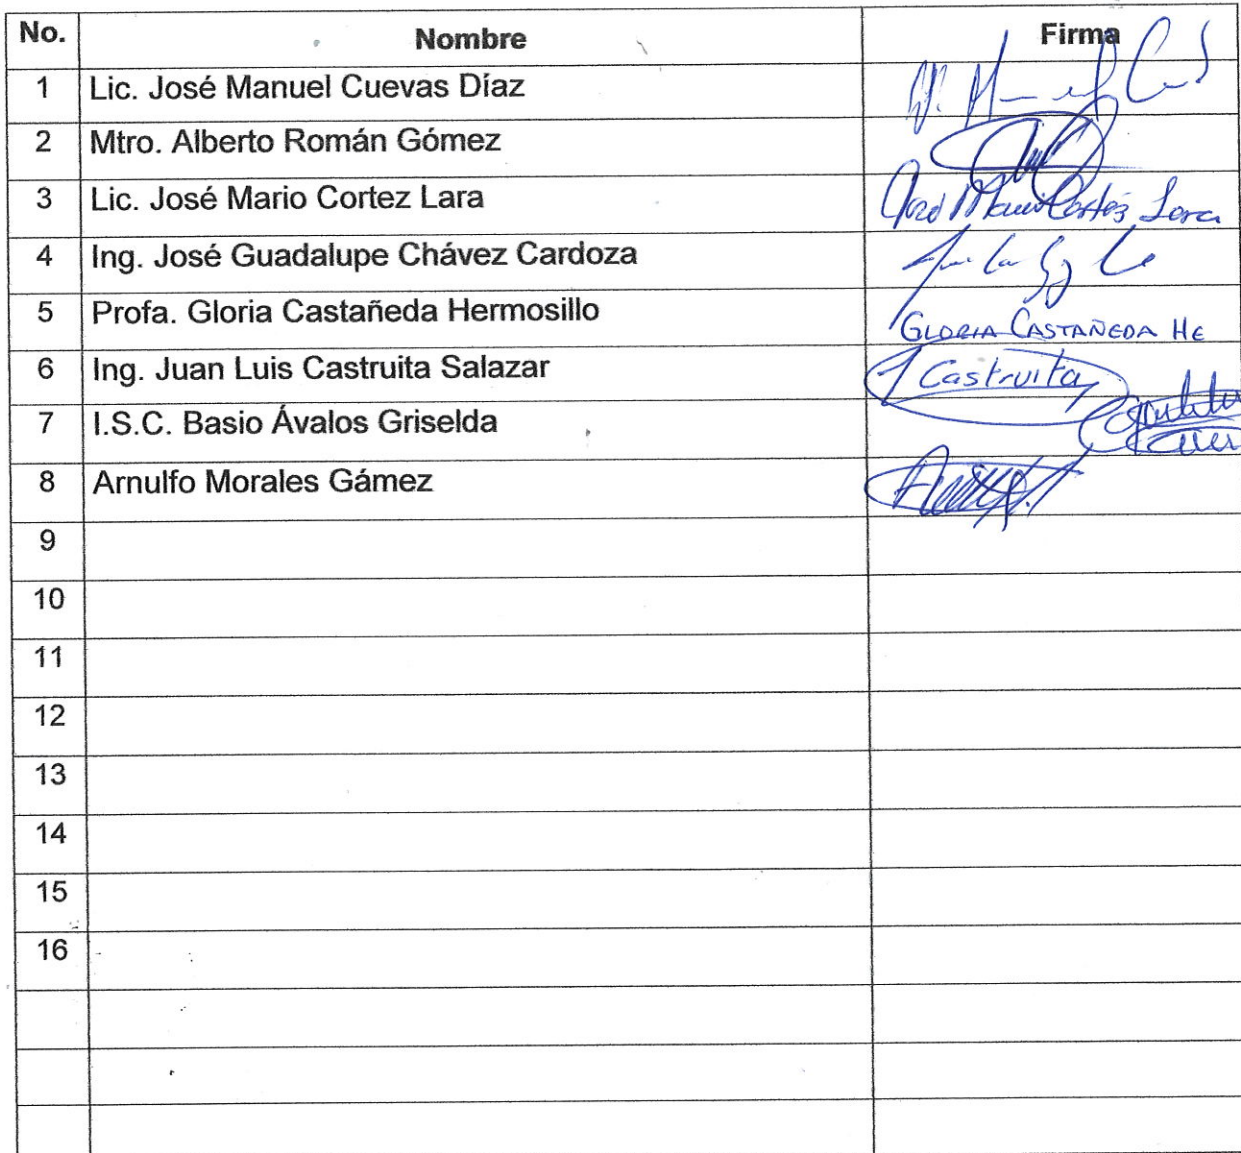 No. Nombre Firma
1 Lic. José Manuel Cuevas Díaz
2 Mtro. Alberto Román Gómez
3 Lic. José Mario Cortez Lara José Mario Cortés Lara
4 Ing. José Guadalupe Chávez Cardoza
5 Profa. Gloria Castañeda Hermosillo GLORIA CASTAÑEDA HE
6 Ing. Juan Luis Castruita Salazar J Castruita
7 I.S.C. Basio Ávalos Griselda
8 Arnulfo Morales Gámez
9
10
11
12
13
14
15
16